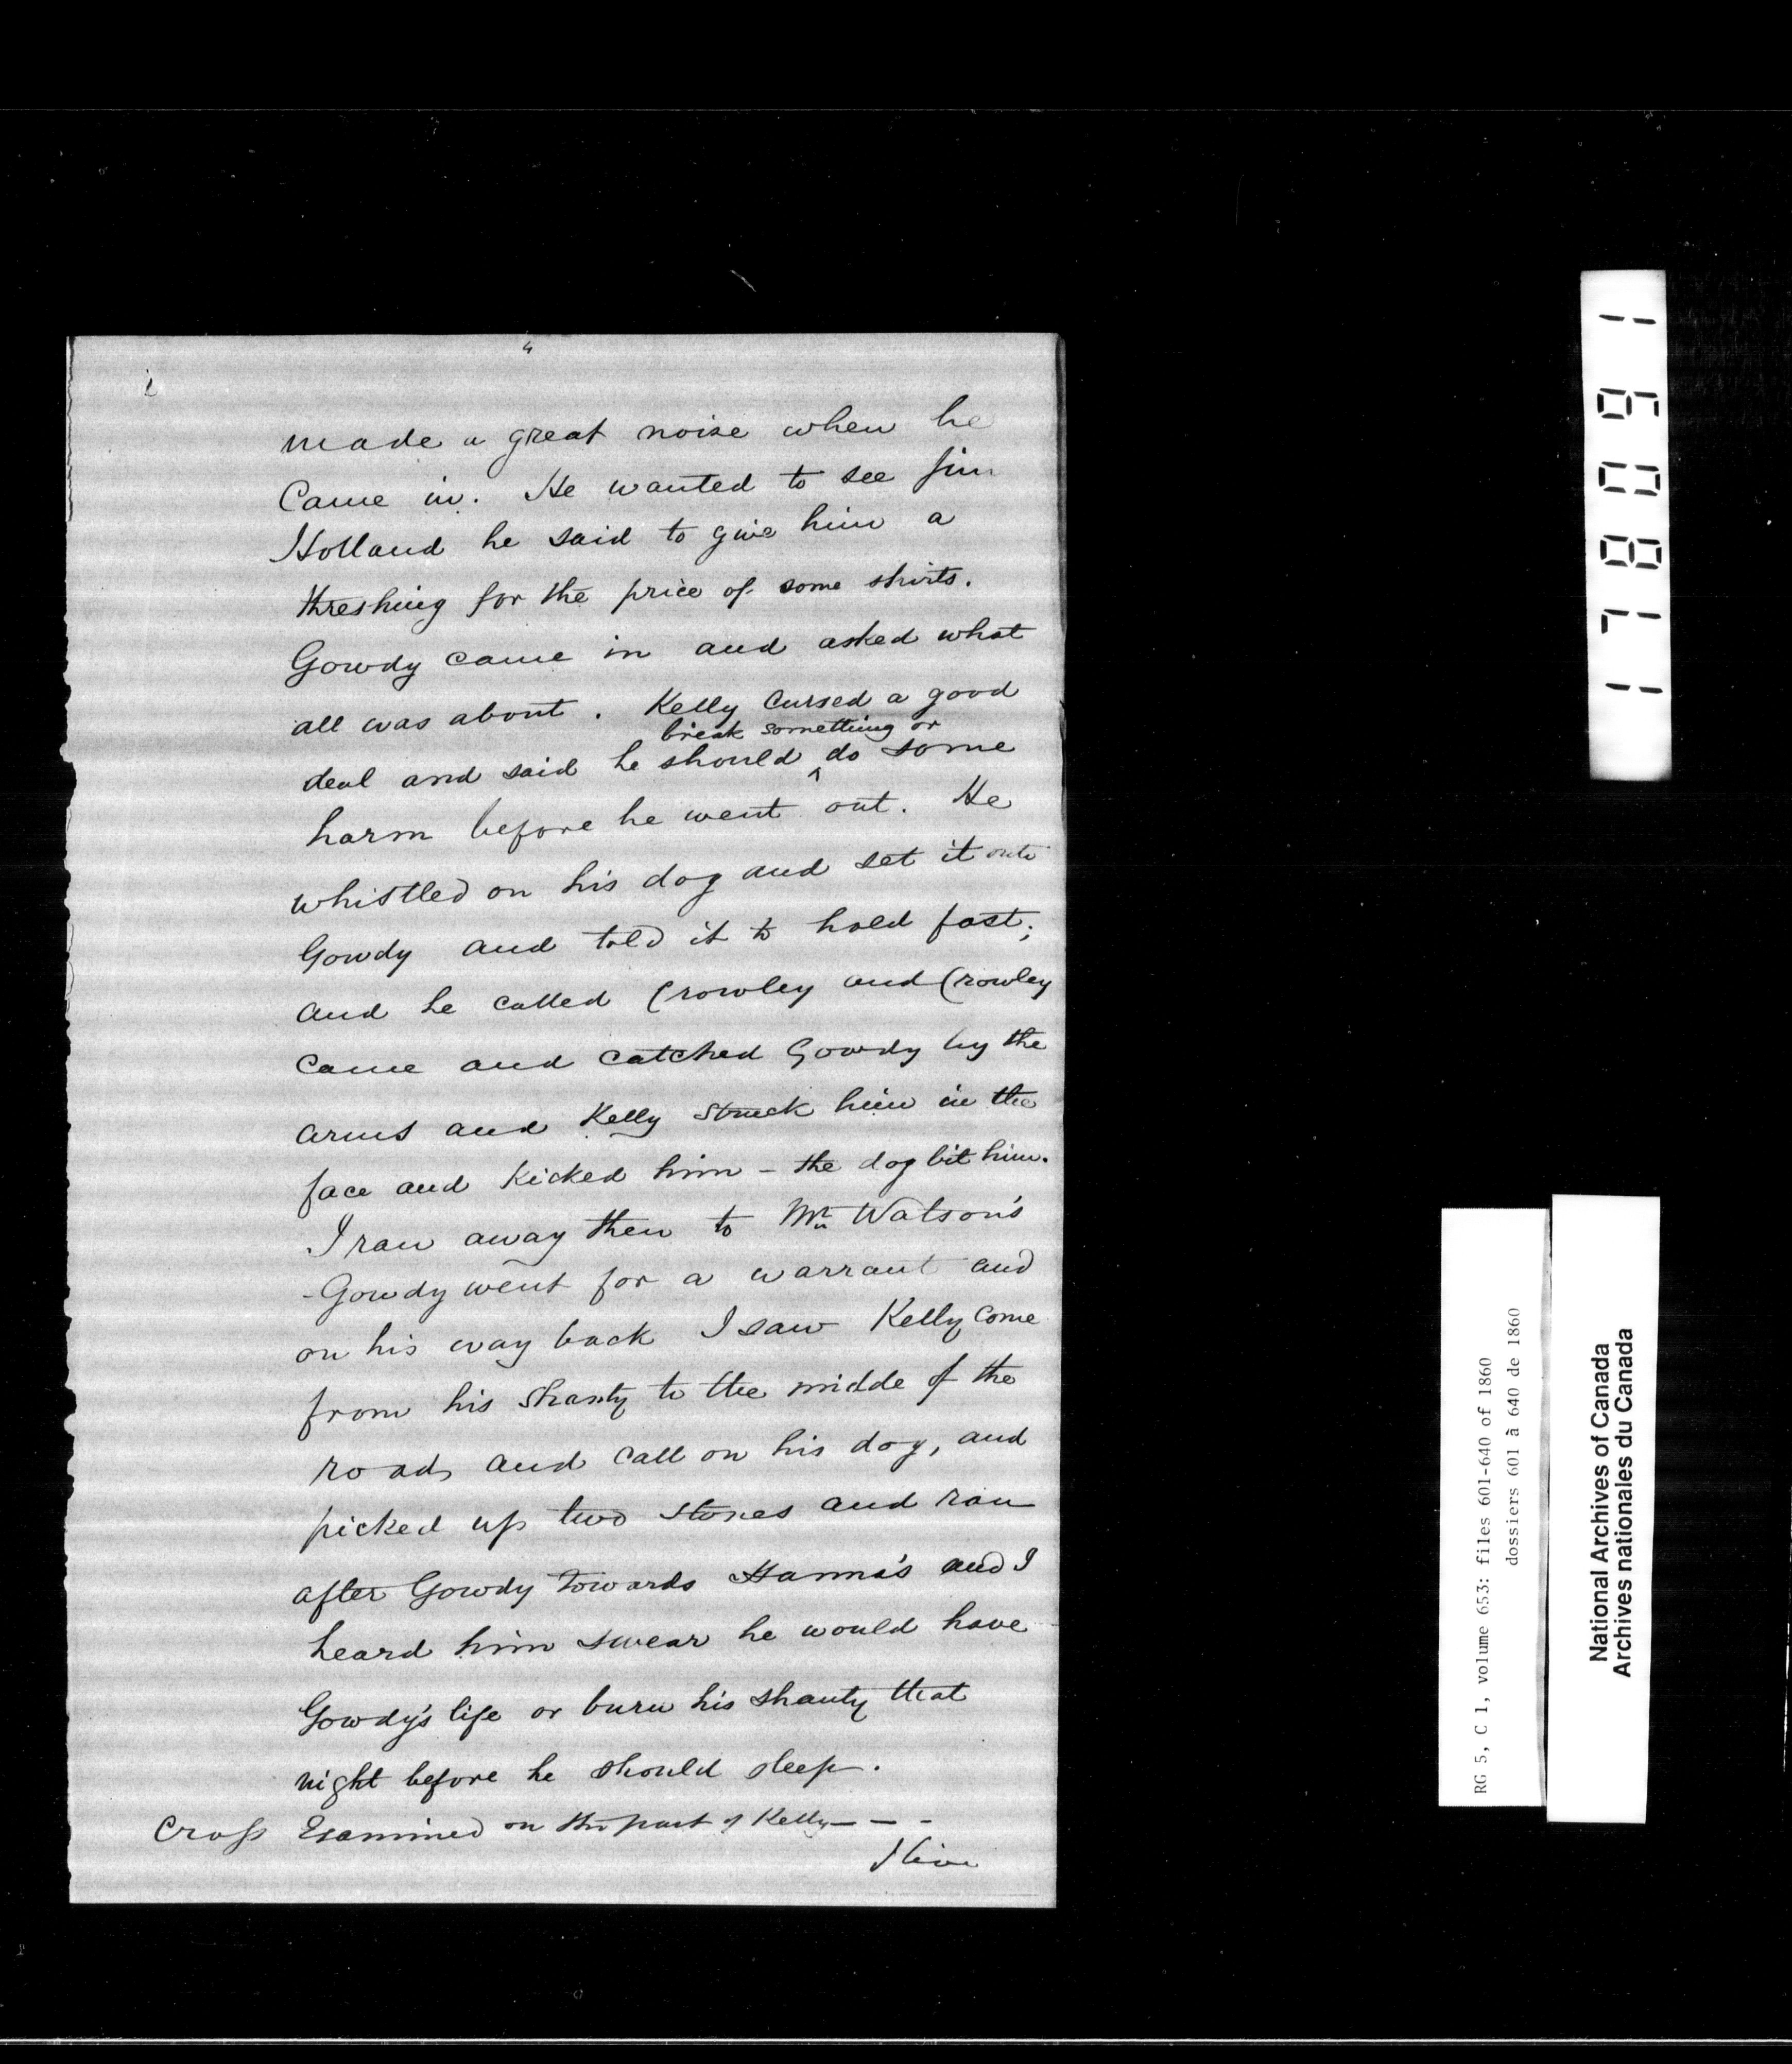 4
made a great noise when he
Came in. He wanted to see Jim
Holland he said to give him a
threshing for the price of some shirts.
Gowdy came in and asked what
all was about. Kelly Cursed a good
break something or
deal and said he should ^ do some
harm before he went out. He
whistled on his dog and set it onto
Gowdy and told it to hold fast;
and he called Crowley and Crowley
came and catched Gowdy by the
arms and Kelly struck him in the
face and kicked him – the dog bit him.
I ran away then to Mr Watson's
- Gowdy went for a warrant and
on his way back I saw Kelly come
from his Shanty to the midde of the
road, and call on his dog, and
picked up two stones and ran
after Gowdy towards Hanna's and I
heard him swear he would have
Gowdy's life or burn his shanty that
night before he should sleep.
Cross Examined on the part of Kelly — — -
I live
178091
RG 5, C 1, volume 653: files 601-640 of 1860
dossiers 601 à 640 de 1860
National Archives of Canada
Archives nationales du Canada